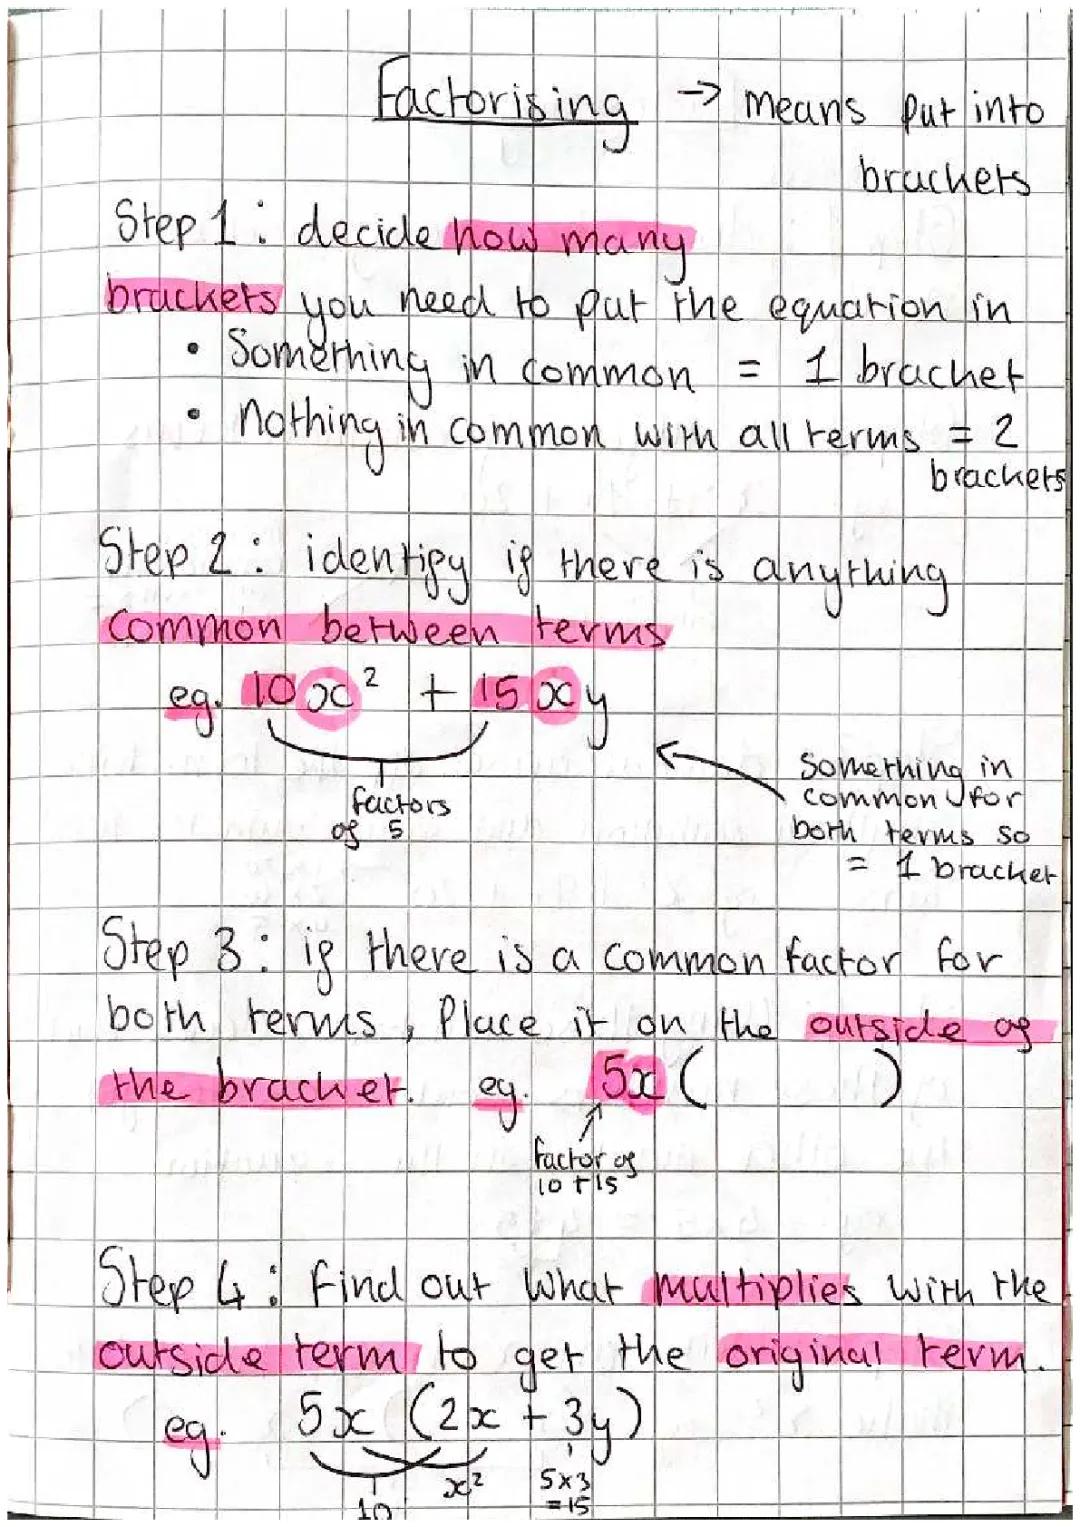 Factorising → means put into
brackets
Step 1: decide how many
brackets you need to put the equation in
• Something in common = 1 bracket
• nothing in common with all terms = 2
brackets
Step 2: identify if there is anything
common between terms
eg. 10x² + 15xy
factors
of 5
Something in
common for
both terms so
= 1 bracket
Step 3: if there is a common factor for
both terms, Place it on the outside of
the bracket. eg. 5x ( )
factor of
10 + 15
Step 4: find out what multiplies with the
outside term to get the original term.
eg. 5x (2x + 3y)
x² 5x3
10 =15